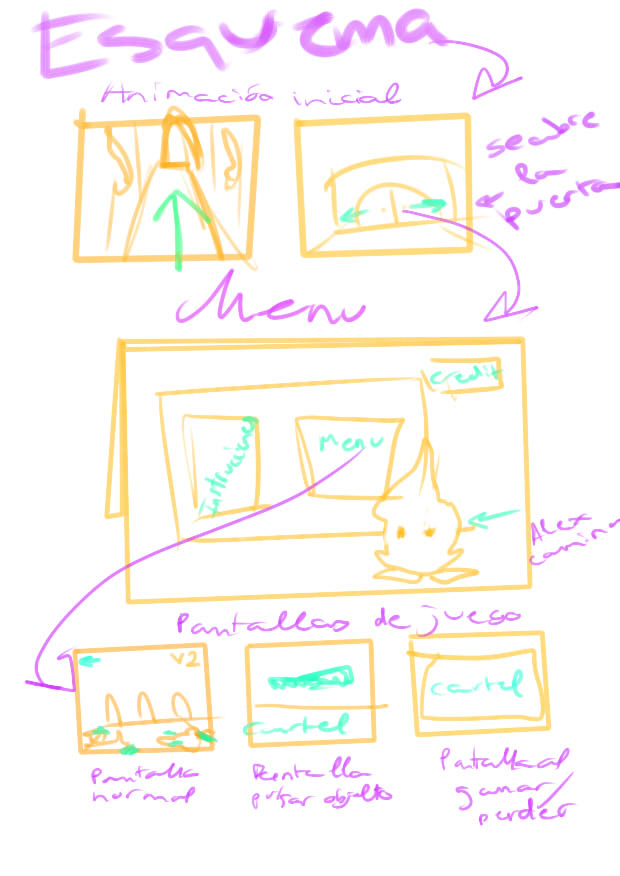 Esquema
Animación inicial
se abre
la
puerta
Menu
credit
Intruciones
Menu
Alex
camina
Pantallas de juego
V2
cartel
cartel
Pantalla
normal
Pantalla
pulsar objeto
Pantalla al
ganar/
perder